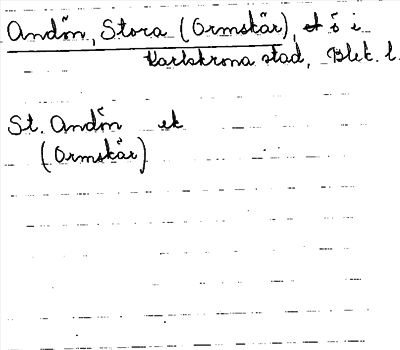 Andön, Stora (Ormskär), ö i
Karlskrona stad, Blek. l.
St. Andön ek
(Ormskär)